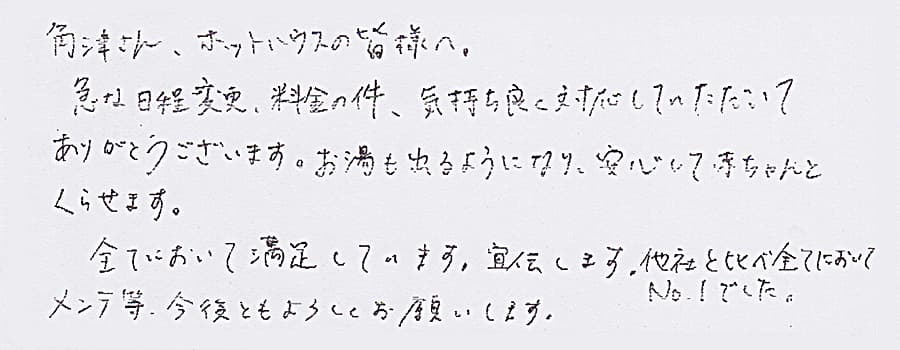 角津さん、ホットハウスの皆様へ。
急な日程変更、料金の件、気持ち良く対応していただいて
ありがとうございます。お湯も出るようになり、安心して赤ちゃんと
くらせます。
全てにおいて満足しています。宣伝します。他社と比べ全てにおいて
No.1でした。
メンテ等、今後ともよろしくお願いします。